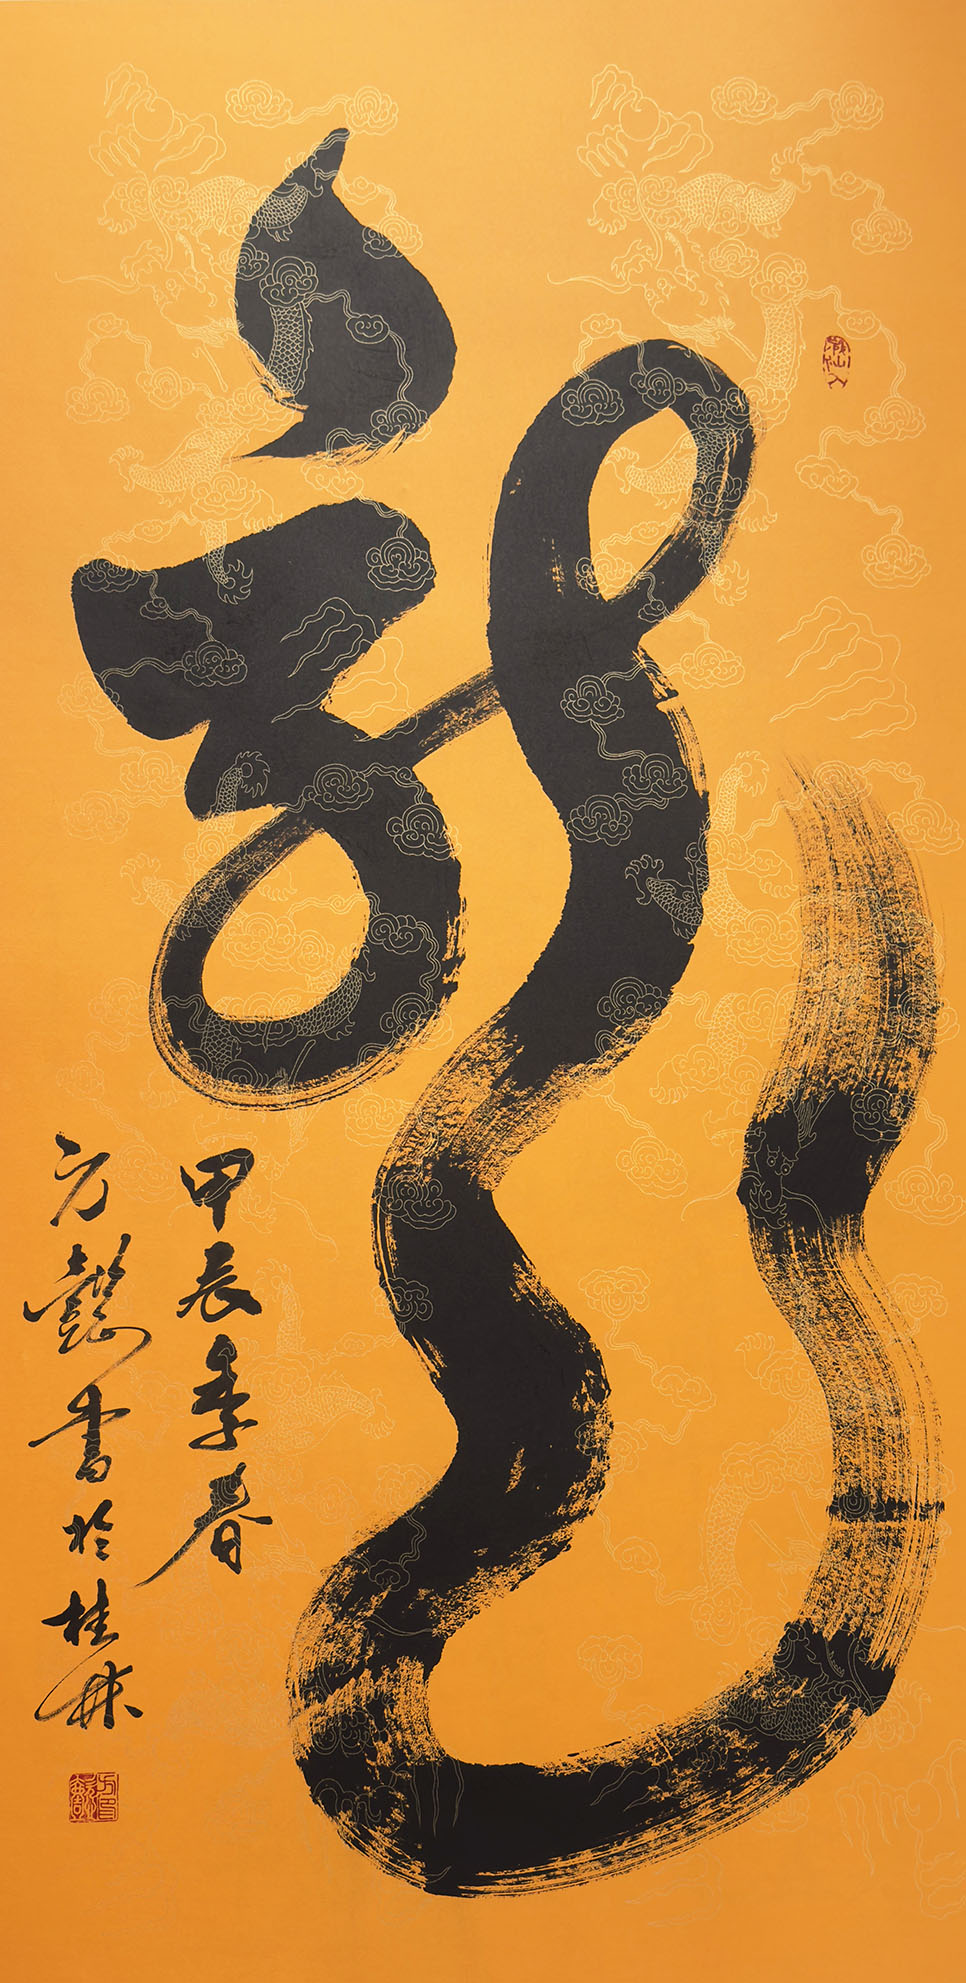 龍
甲辰季春
方懿書於桂林